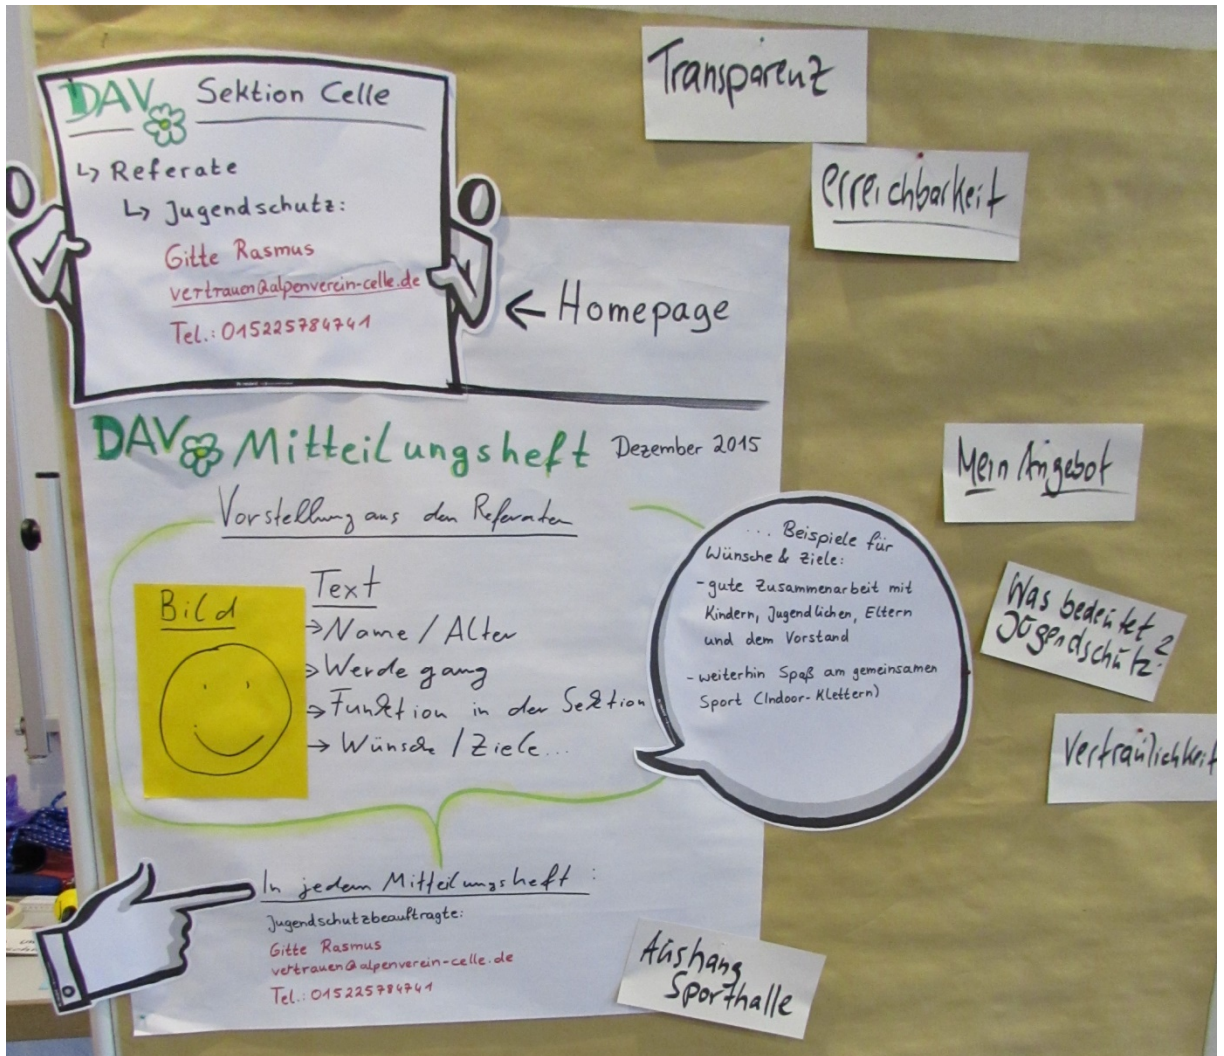 DAV Sektion Celle
↳ Referate
↳ Jugendschutz:
Gitte Rasmus
vertrauen@alpenverein-celle.de
Tel.: 015225784741
← Homepage
Transparenz
erreichbarkeit
DAV Mitteilungsheft Dezember 2015
Vorstellung aus den Referaten
Bild
Text
→ Name / Alter
→ Werdegang
→ Funktion in der Sektion
→ Wünsche / Ziele...
... Beispiele für
Wünsche & Ziele:
- gute Zusammenarbeit mit
Kindern, Jugendlichen, Eltern
und dem Vorstand
- weiterhin Spaß am gemeinsamen
Sport (Indoor-Klettern)
Mein Angebot
Was bedeutet
Jugendschutz?
Vertraulichkeit
In jedem Mitteilungsheft:
Jugendschutzbeauftragte:
Gitte Rasmus
vertrauen@alpenverein-celle.de
Tel.: 015225784741
Aushang
Sporthalle